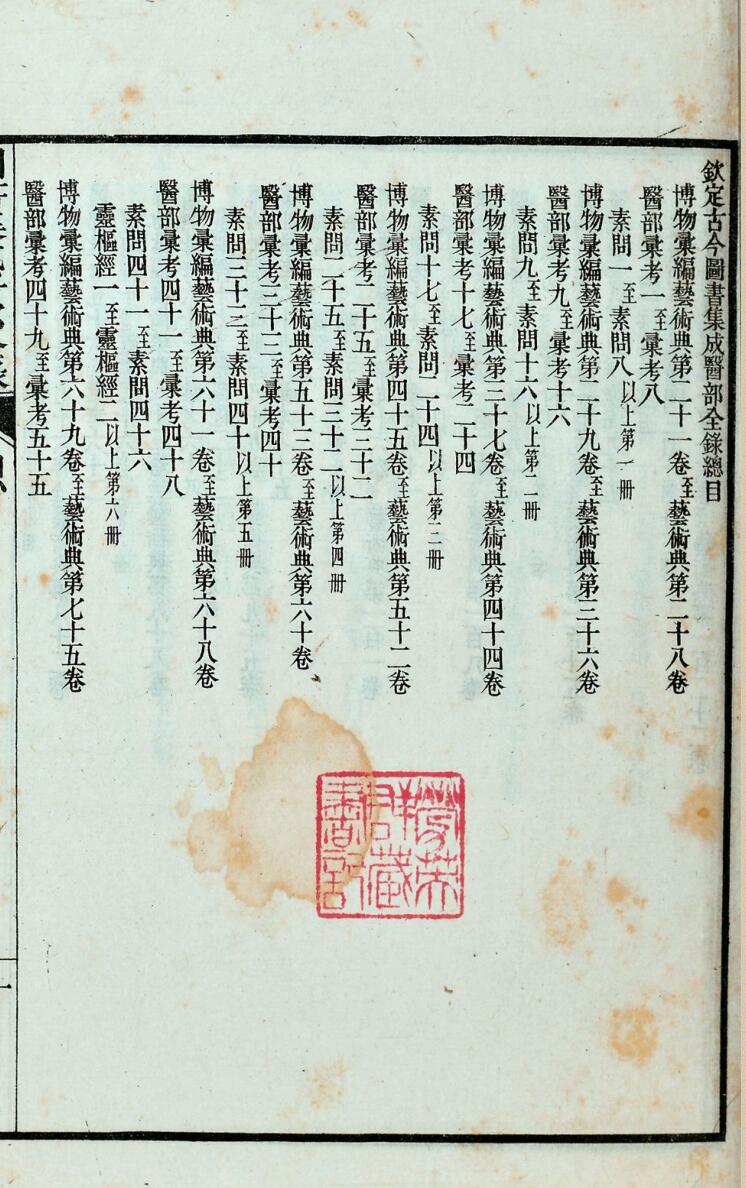 欽定古今圖書集成醫部全錄總目
博物彙編藝術典第二十一卷至藝術典第二十八卷
醫部彙考一至彙考八
素問一至素問八以上第一冊
博物彙編藝術典第二十九卷至藝術典第三十六卷
醫部彙考九至彙考十六
素問九至素問十六以上第二冊
博物彙編藝術典第三十七卷至藝術典第四十四卷
醫部彙考十七至彙考二十四
素問十七至素問二十四以上第三冊
博物彙編藝術典第四十五卷至藝術典第五十二卷
醫部彙考二十五至彙考三十二
素問二十五至素問三十二以上第四冊
博物彙編藝術典第五十三卷至藝術典第六十卷
醫部彙考三十三至彙考四十
素問三十三至素問四十以上第五冊
博物彙編藝術典第六十一卷至藝術典第六十八卷
醫部彙考四十一至彙考四十八
素問四十一至素問四十六
靈樞經一至靈樞經二以上第六冊
博物彙編藝術典第六十九卷至藝術典第七十五卷
醫部彙考四十九至彙考五十五
一